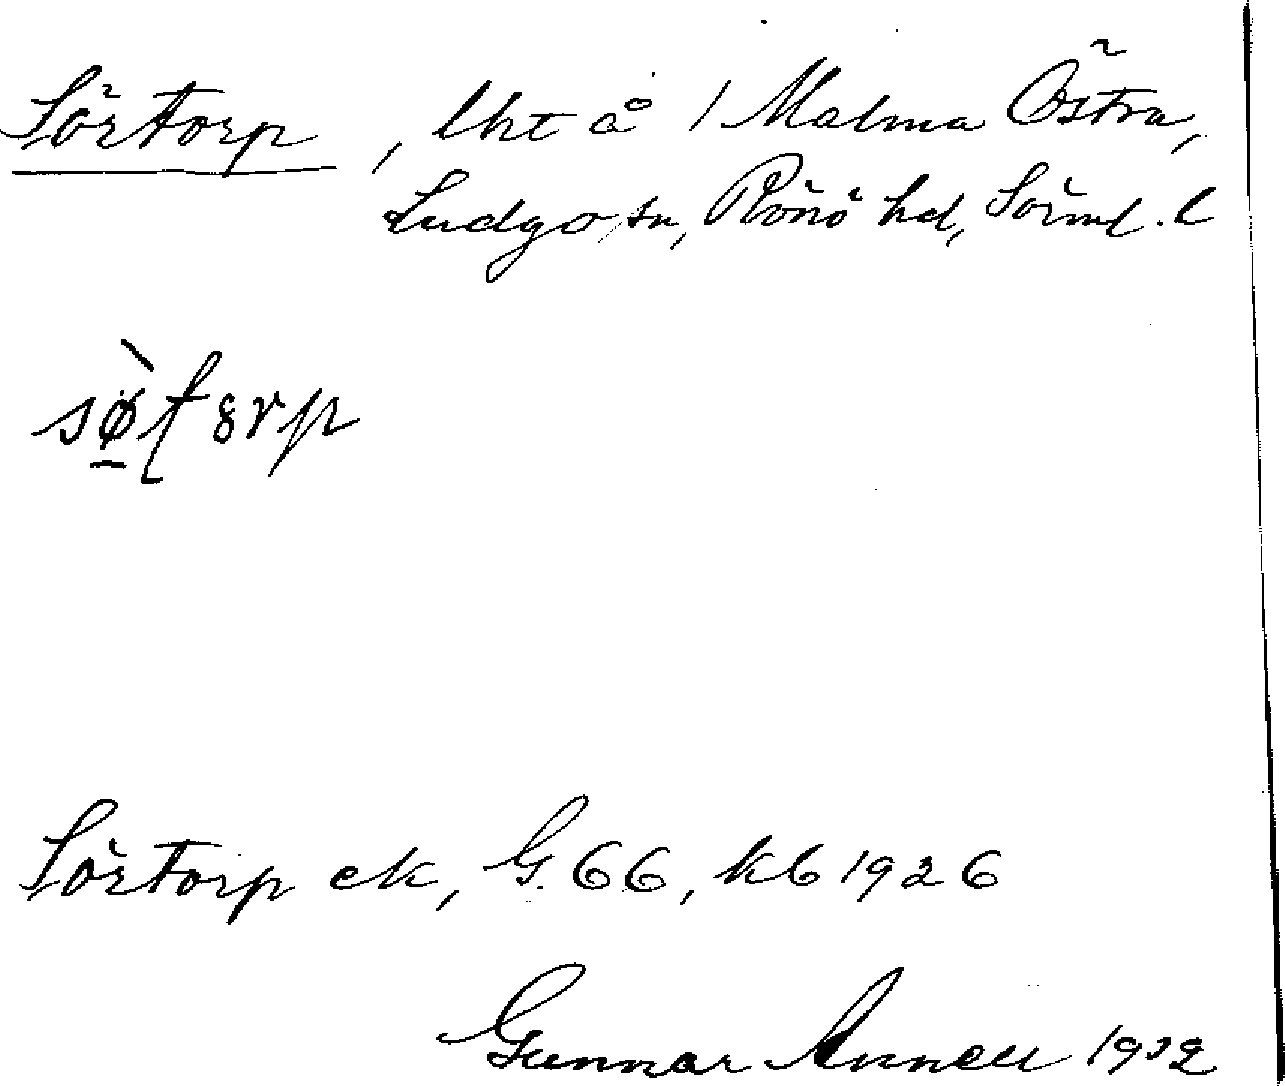 Sörtorp, lht å 1 Malma Östra,
Ludgo sn, Rönö hd, Sörml. l
sø̀ʈ8rp
Sörtorp ek, G. 66, kb 1926
Gunnar Annell 1932